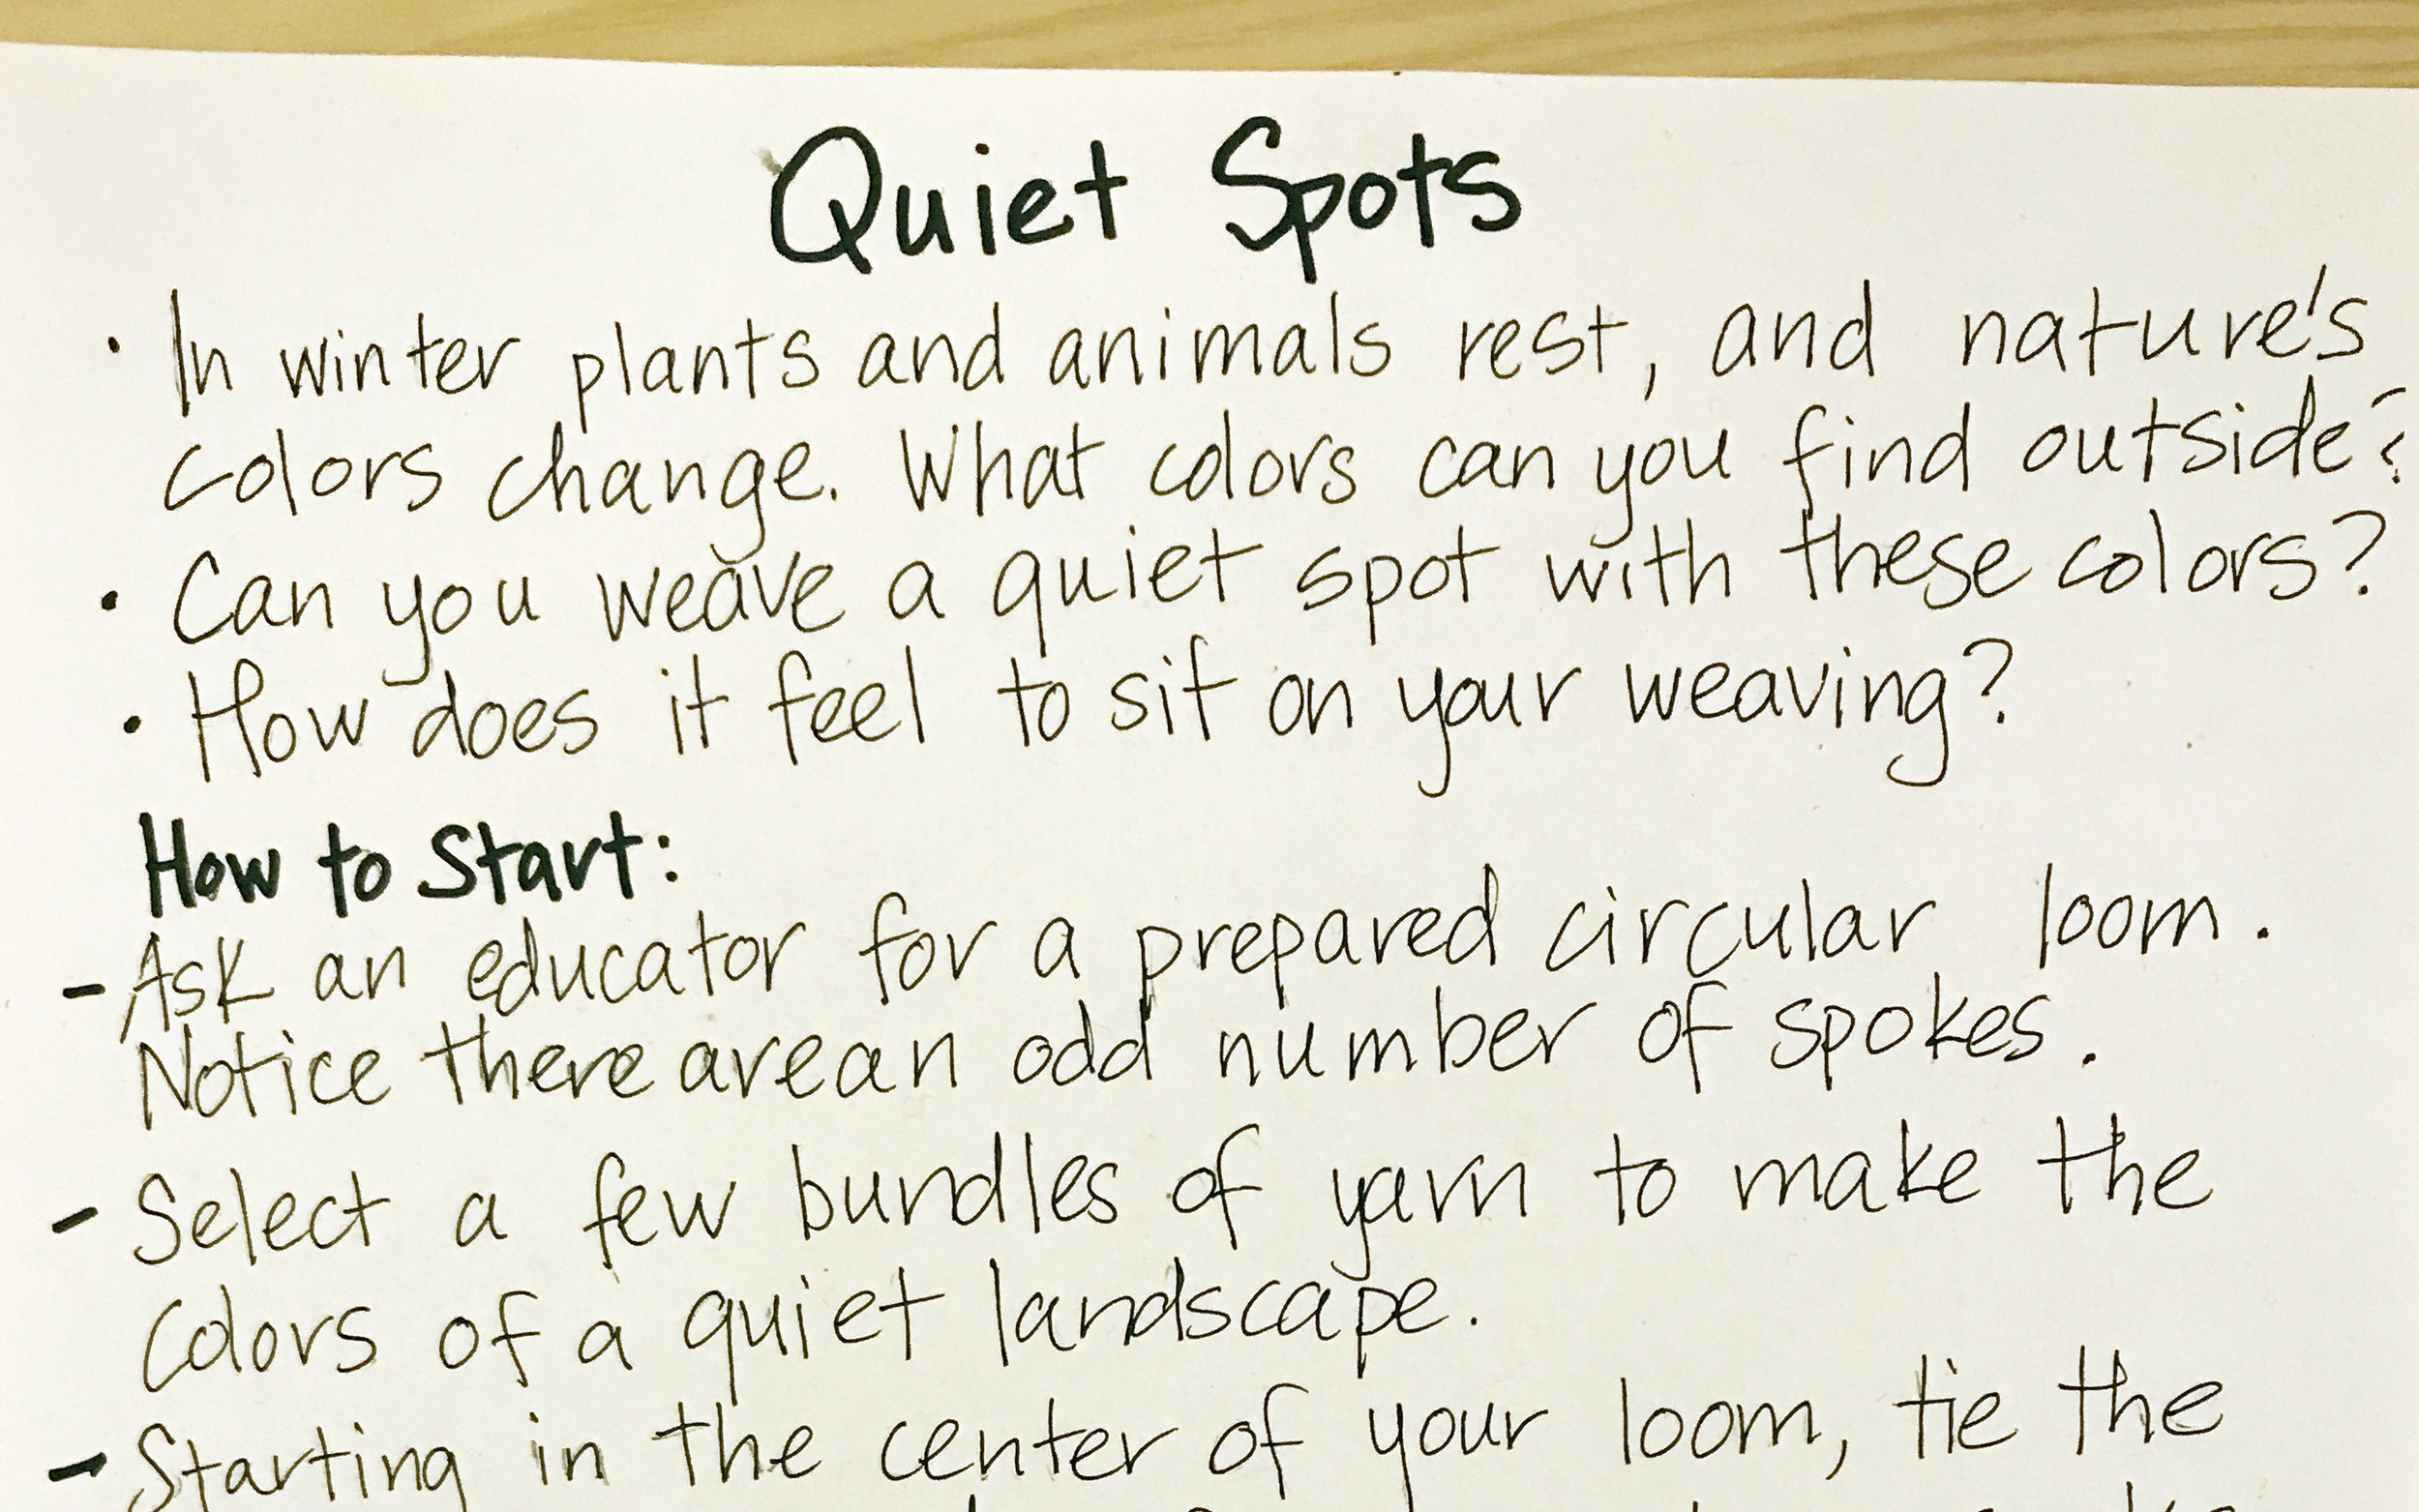 Quiet Spots
· In winter plants and animals rest, and nature's
colors change. What colors can you find outside?
· Can you weave a quiet spot with these colors?
· How does it feel to sit on your weaving?
How to Start:
- Ask an educator for a prepared circular loom.
Notice there are an odd number of spokes.
- Select a few bundles of yarn to make the
colors of a quiet landscape.
- Starting in the center of your loom, tie the